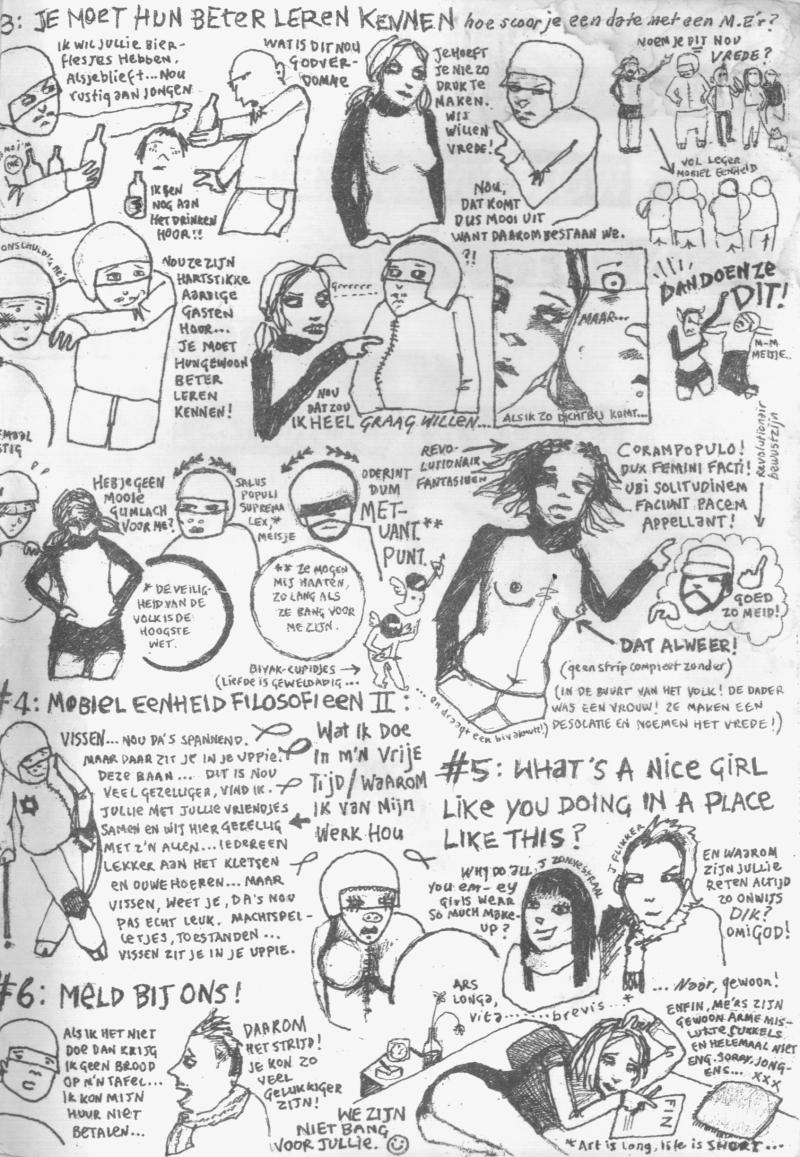 3: JE MOET HUN BETER LEREN KENNEN hoe scoor je een date met een M.E'r?
IK WIL JULLIE BIER-
FLESJES HEBBEN,
ALSJEBLIEFT... NOU
RUSTIG AAN JONGEN
IK BEN
NOG AAN
HET DRINKEN
HOOR!!
WAT IS DIT NOU
GODVER-
DOMME
JE HOEFT
JE NIE ZO
DRUK TE
MAKEN.
WIJ
WILLEN
VREDE!
NOU,
DAT KOMT
DUS MOOI UIT
WANT DAAROM BESTAAN WE.
NOEM JE DIT NOU
VREDE?
VOL LEGER
MOBIEL EENHEID
ONSCHULDIG
NOU ZE ZIJN
HARTSTIKKE
AARDIGE
GASTEN
HOOR...
JE MOET
HUN GEWOON
BETER
LEREN
KENNEN!
Grrrrrr
?!
NOU
DAT ZOU
IK HEEL GRAAG WILLEN...
MAAR...
ALS IK ZO DICHTBIJ KOMT...
DAN DOEN ZE
DIT!
M-M
MEISJE..
EMAAL
STIG
HEB JE GEEN
MOOIE
GLIMLACH
VOOR ME?
SALUS
POPULI
SUPREMA
LEX,*
MEISJE
* DE VEILIG-
HEID VAN DE
VOLK IS DE
HOOGSTE
WET.
ODERINT
DUM
MET-
UANT.**
PUNT.
** ZE MOGEN
MIJ HAATEN,
ZO LANG ALS
ZE BANG VOOR
ME ZIJN.
BIVAK-CUPIDJES
(LIEFDE IS GEWELDADIG...
... en draagt een bivakmuts!)
REVO-
LUTIONAIR
FANTASIEEN
CORAM POPULO!
DUX FEMINI FACTI!
UBI SOLITUDINEM
FACIUNT PACEM
APPELLANT!
Revolutionair
bewustzijn
GOED
ZO MEID!
DAT ALWEER!
(geen strip compleet zonder)
(IN DE BUURT VAN HET VOLK! DE DADER
WAS EEN VROUW! ZE MAKEN EEN
DESOLATIE EN NOEMEN HET VREDE!)
#4: MOBIEL EENHEID FILOSOFIEEN II:
Wat ik Doe
in m'n Vrije
Tijd/Waarom
ik van Mijn
Werk Hou
VISSEN... NOU DA'S SPANNEND.
MAAR DAAR ZIT JE IN JE UPPIE.
DEZE BAAN... DIT IS NOU
VEEL GEZELLIGER, VIND IK.
JULLIE MET JULLIE VRIENDJES
SAMEN EN WIJ HIER GEZELLIG
MET Z'N ALLEN... IEDEREEN
LEKKER AAN HET KLETSEN
EN OUWEHOEREN... MAAR
VISSEN, WEET JE, DA'S NOU
PAS ECHT LEUK. MACHTSPEL-
LETJES, TOESTANDEN...
VISSEN ZIT JE IN JE UPPIE.
#5: WHAT'S A NICE GIRL
LIKE YOU DOING IN A PLACE
LIKE THIS?
WHY DO ALL
YOU em-ey
GIRLS WEAR
SO MUCH MAKE-
UP?
J ZONNESTRAAL
J FLIKKER
EN WAAROM
ZIJN JULLIE
RETEN ALTIJD
ZO ONWIJS
DIK?
OMIGOD!
#6: MELD BIJ ONS!
ALS IK HET NIET
DOE DAN KRIJG
IK GEEN BROOD
OP M'N TAFEL...
IK KON MIJN
HUUR NIET
BETALEN...
DAAROM
HET STRIJD!
JE KON ZO
VEEL
GELUKKIGER
ZIJN!
ARS
LONGA,
vita........brevis...*
... Naar, gewoon!
ENFIN, ME'RS ZIJN
GEWOON ARME MIS-
LUKTE SUKKELS
EN HELEMAAL NIET
ENG. SORRY, JONG-
ENS... XXX
FIN
WE ZIJN
NIET BANG
VOOR JULLIE.
*Art is long, life is SHORT...